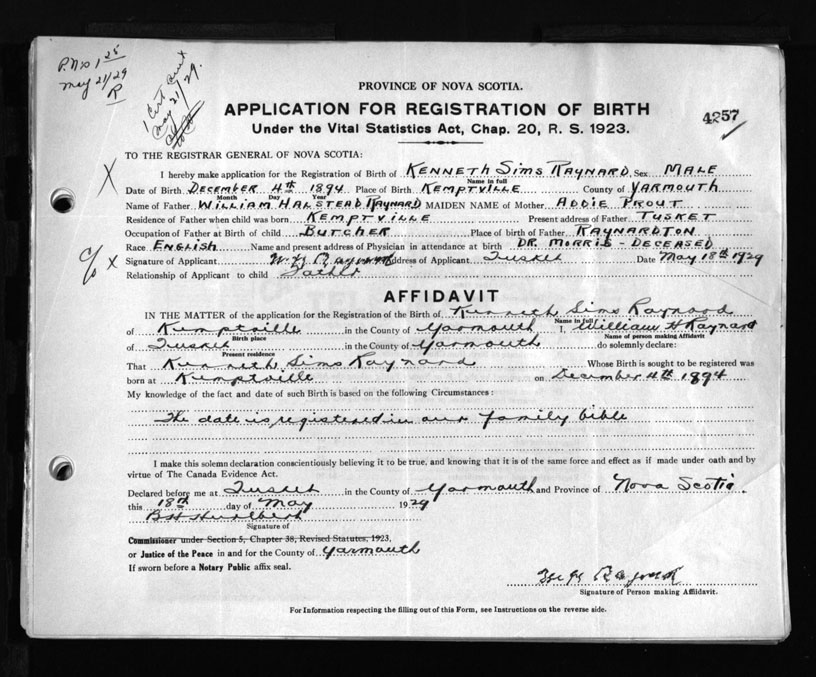 P.No 1 25
May 21/29
R
1 Cert
May 21/29.
PROVINCE OF NOVA SCOTIA.
APPLICATION FOR REGISTRATION OF BIRTH
4257
Under the Vital Statistics Act, Chap. 20, R. S. 1923.
TO THE REGISTRAR GENERAL OF NOVA SCOTIA:
I hereby make application for the Registration of Birth of KENNETH SIMS RAYNARD, Sex MALE
Name in full
X
Date of Birth DECEMBER 4th 1894 Place of Birth KEMPTVILLE County of YARMOUTH
Month Day Year
Name of Father WILLIAM HALSTEAD RAYNARD MAIDEN NAME of Mother ADDIE PROUT
Residence of Father when child was born KEMPTVILLE Present address of Father TUSKET
Occupation of Father at Birth of child BUTCHER Place of birth of Father RAYNARDTON
Race ENGLISH Name and present address of Physician in attendance at birth DR. MORRIS - DECEASED
c/o X Signature of Applicant W. H. Raynard Address of Applicant Tusket Date May 18th 1929
Relationship of Applicant to child Father
AFFIDAVIT
IN THE MATTER of the application for the Registration of the Birth of Kenneth Sims Raynard
Name in full
of Kemptville in the County of Yarmouth I, William H Raynard
Birth place Name of person making Affidavit
of Tusket in the County of Yarmouth do solemnly declare:
Present residence
That Kenneth Sims Raynard Whose Birth is sought to be registered was
born at Kemptville on December 4th 1894
My knowledge of the fact and date of such Birth is based on the following Circumstances:
The date is registered in our family bible
I make this solemn declaration conscientiously believing it to be true, and knowing that it is of the same force and effect as if made under oath and by
virtue of The Canada Evidence Act.
Declared before me at Tusket in the County of Yarmouth and Province of Nova Scotia.
this 18th day of May 1929
B H Hurlbert
Signature of
Commissioner under Section 5, Chapter 38, Revised Statutes, 1923,
or Justice of the Peace in and for the County of Yarmouth
If sworn before a Notary Public affix seal.
W H Raynard
Signature of Person making Affidavit.
For Information respecting the filling out of this Form, see Instructions on the reverse side.